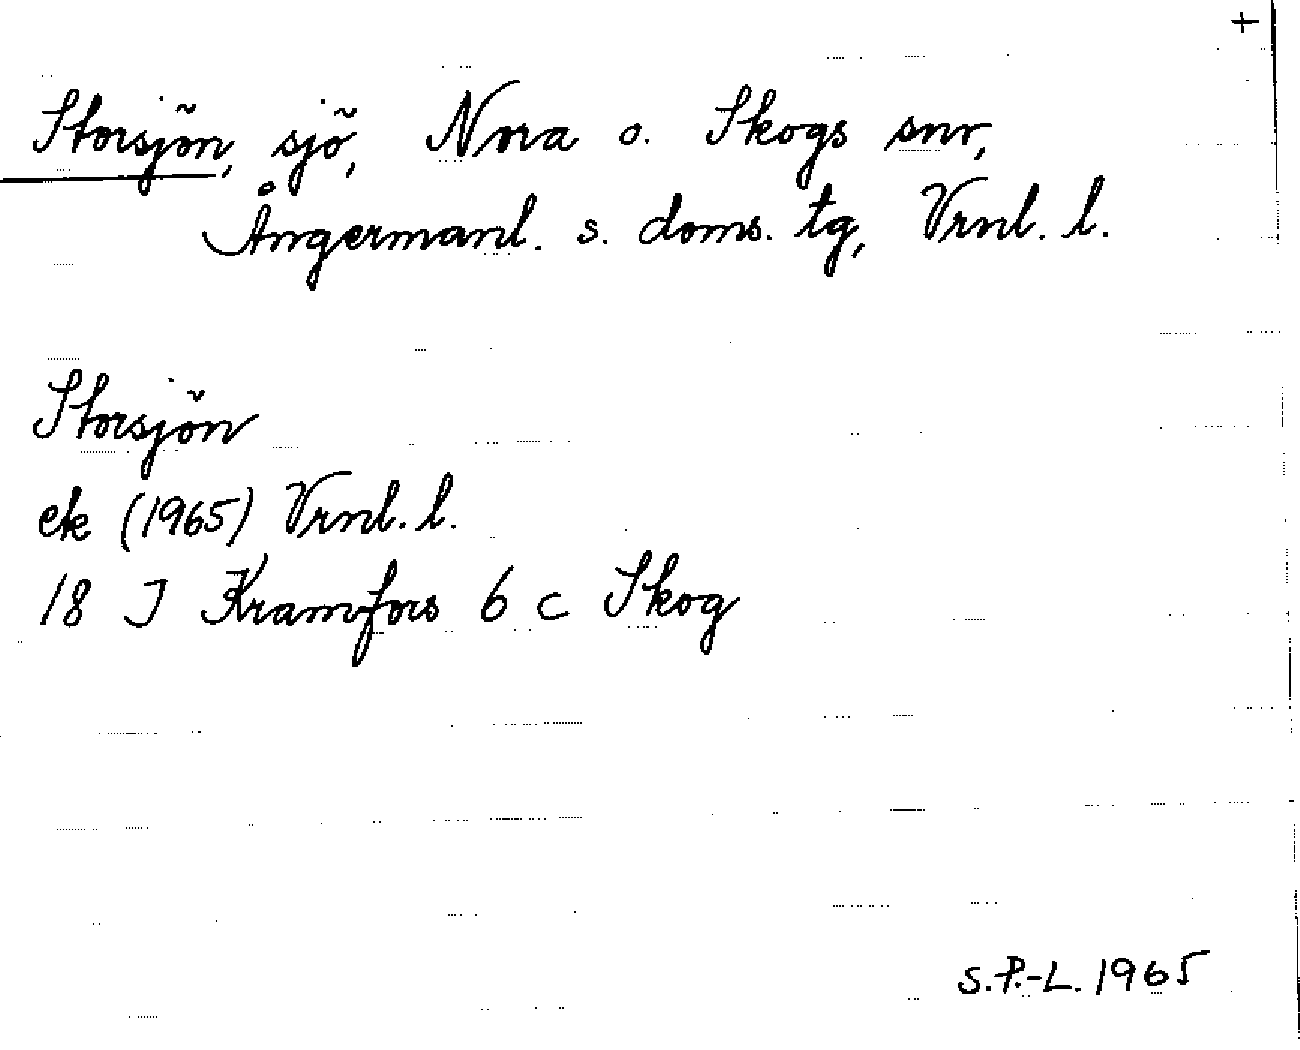 +
Storsjön, sjö, Nora o. Skogs snr,
Ångermanl. s. doms. tg, Vrnl. l.
Storsjön
ek (1965) Vrnl. l.
18 J Kramfors 6 c Skog
S.P.-L. 1965